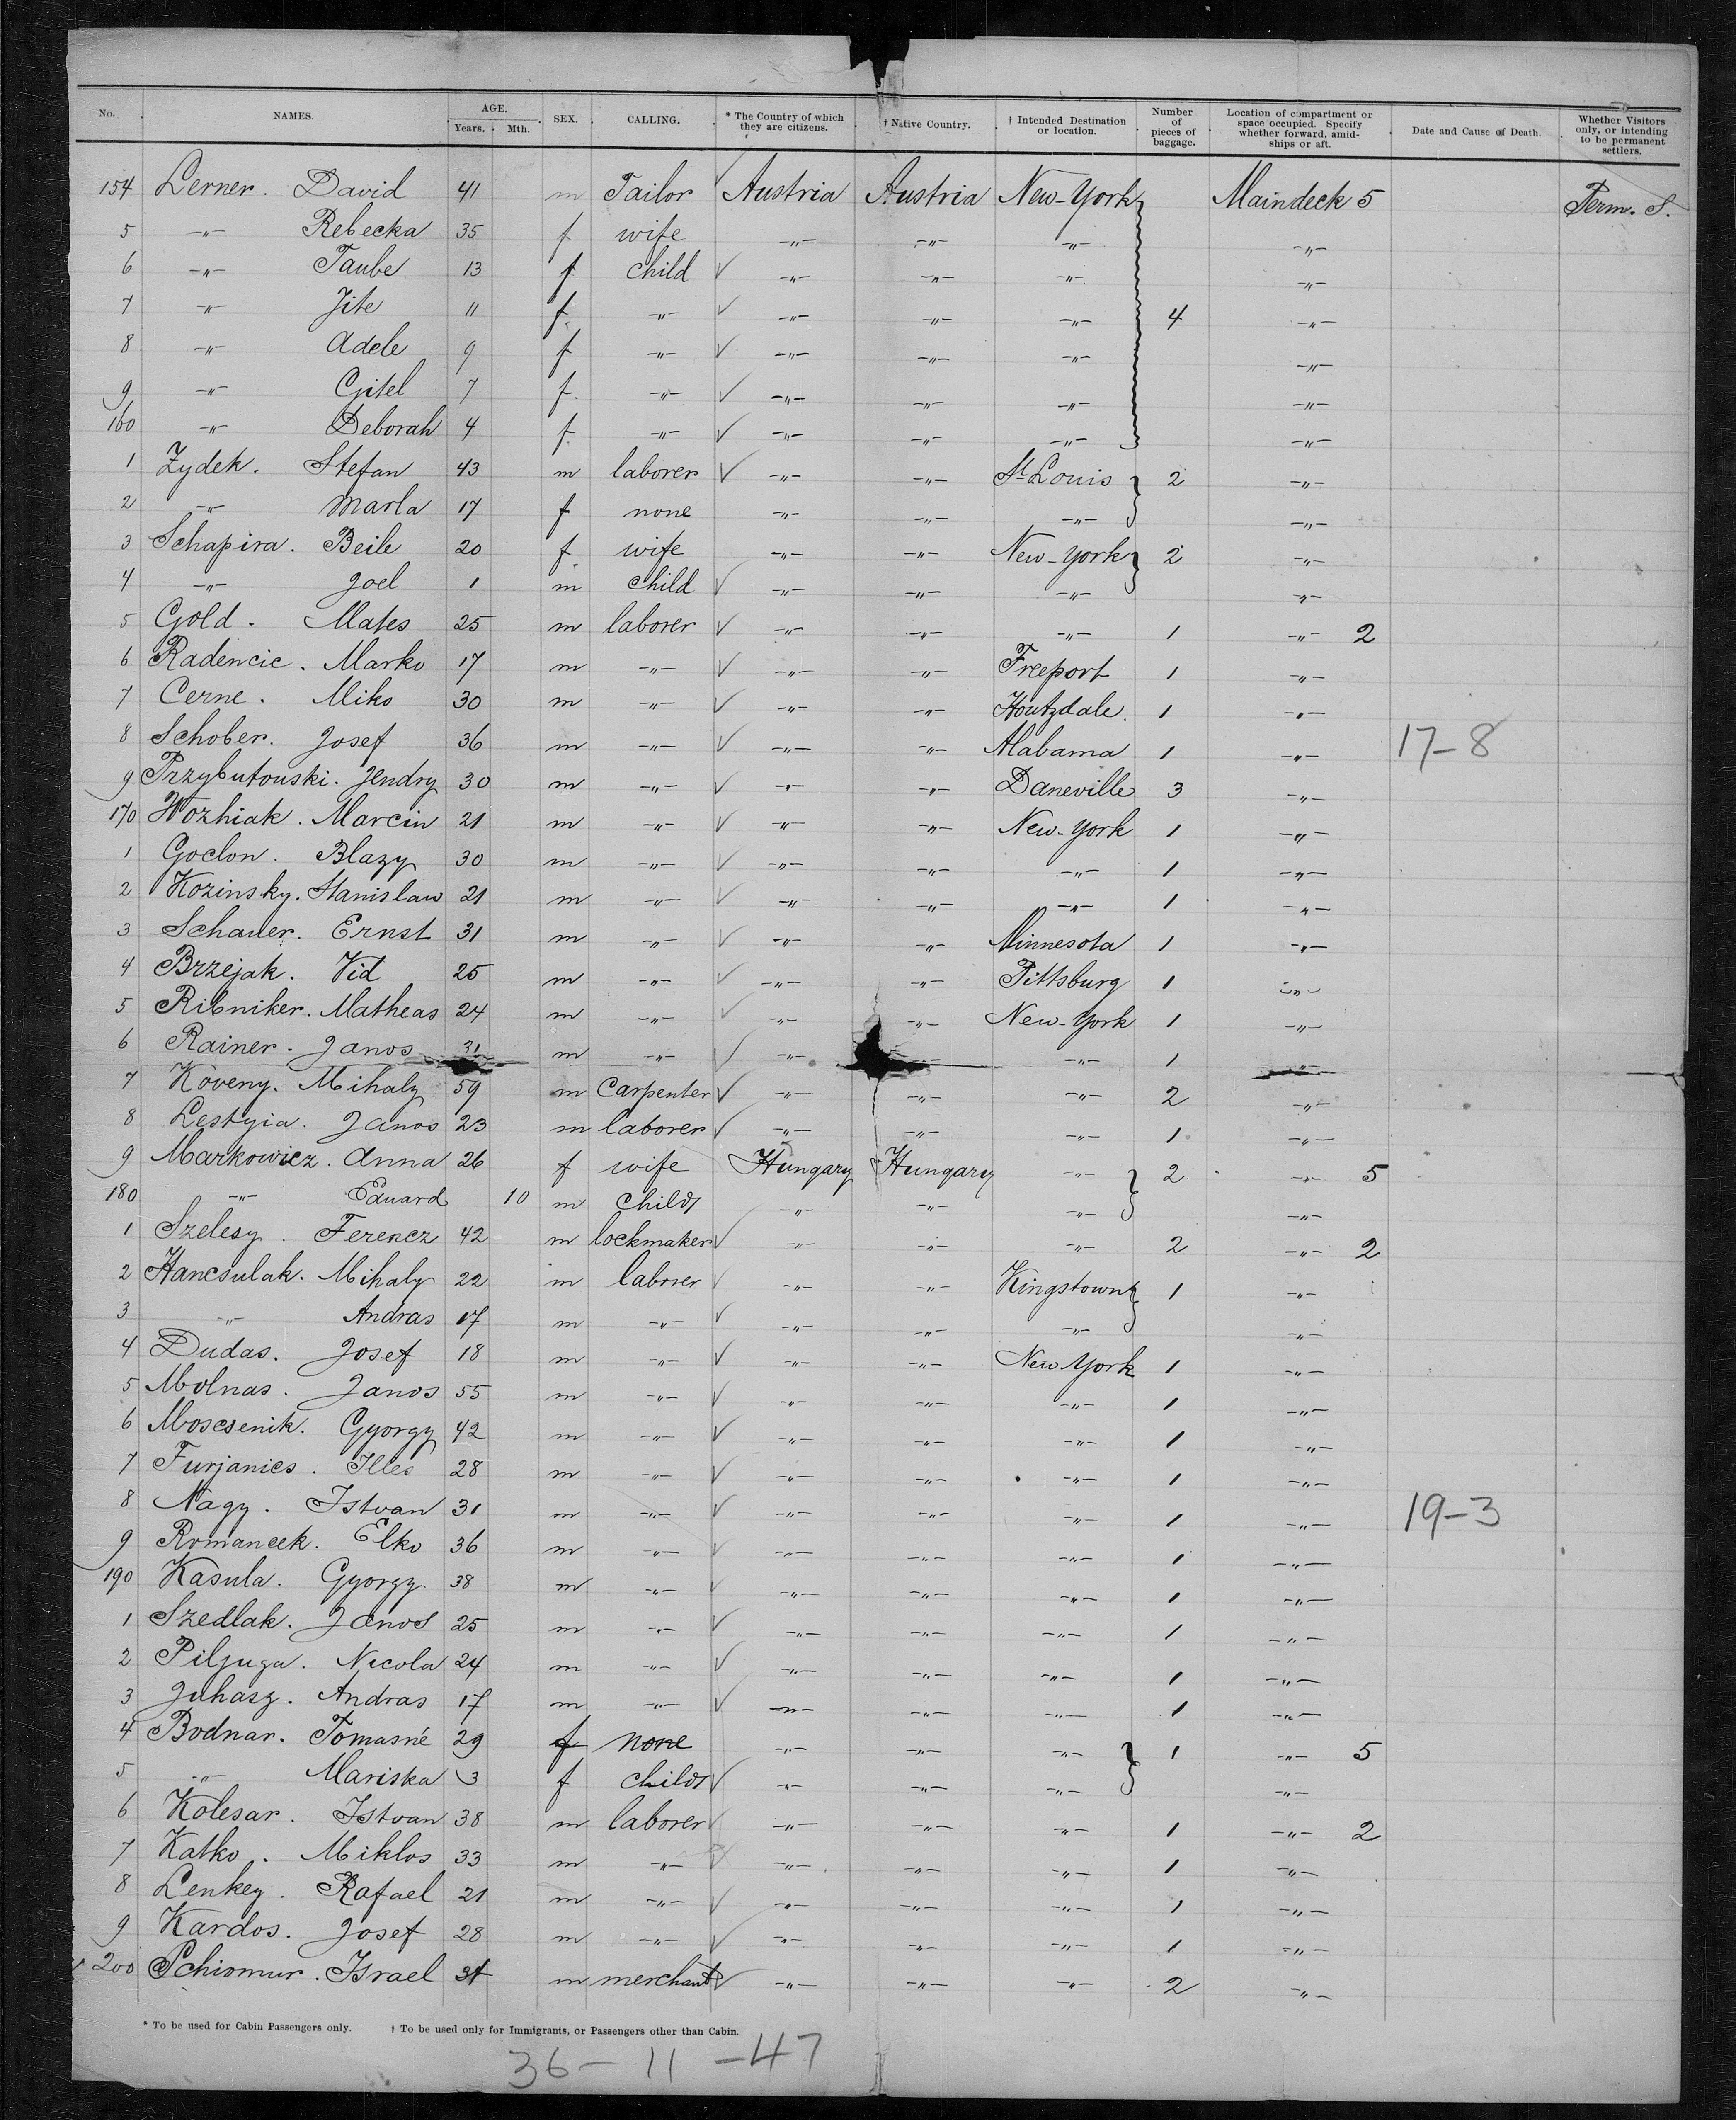 No. NAMES. AGE. Years. Mth. SEX. CALLING. * The Country of which they are citizens. † Native Country. † Intended Destination or location. Number of pieces of baggage. Location of compartment or space occupied. Specify whether forward, amidships or aft. Date and Cause of Death. Whether Visitors only, or intending to be permanent settlers.
154 Lerner. David 41 m Tailor Austria Austria New-York Maindeck 5 Perm. S.
5 -"- Rebecka 35 f wife -"- -"- -"- -"-
6 -"- Taube 13 f child -"- -"- -"- -"-
7 -"- Jite 11 f. -"- -"- -"- -"- 4 -"-
8 -"- Adele 9 f -"- -"- -"- -"- -"-
9 -"- Gitel 7 f. -"- -"- -"- -"- -"-
160 -"- Deborah 4 f. -"- -"- -"- -"- -"-
1 Zydek. Stefan 43 m laborer -"- -"- St Louis 2 -"-
2 -"- Marla 17 f none -"- -"- -"- -"-
3 Schapira. Beile 20 f wife -"- -"- New-York 2 -"-
4 -"- Joel 1 m child -"- -"- -"- -"-
5 Gold. Mates 25 m laborer -"- -"- -"- 1 -"- 2
6 Radencic. Marko 17 m -"- -"- -"- Freeport 1 -"-
7 Cerne. Miko 30 m -"- -"- -"- Houtzdale. 1 -"-
8 Schober. Josef 36 m -"- -"- -"- Alabama 1 -"- 17-8
9 Przybutouski. Jendry 30 m -"- -"- -"- Daneville 3 -"-
170 Wozhiak. Marcin 21 m -"- -"- -"- New-York 1 -"-
1 Goclon. Blazy 30 m -"- -"- -"- -"- 1 -"-
2 Kozinsky. Stanislaw 21 m -"- -"- -"- -"- 1 -"-
3 Schauer. Ernst 31 m -"- -"- -"- Minnesota 1 -"-
4 Brzejak. Vid 25 m -"- -"- -"- Pittsburg 1 -"-
5 Ribniker. Matheas 24 m -"- -"- -"- New-York 1 -"-
6 Rainer. Janos 31 m -"- -"- -"- -"- 1 -"-
7 Köveny. Mihaly 59 m carpenter -"- -"- -"- 2 -"-
8 Lestyia. Janos 23 m laborer -"- -"- -"- 1 -"-
9 Markowicz. Anna 26 f wife Hungary Hungary -"- 2 -"- 5
180 -"- Eduard 10 m child -"- -"- -"- -"-
1 Szelesy. Ferencz 42 m lockmaker -"- -"- -"- 2 -"- 2
2 Hancsulak. Mihaly 22 m laborer -"- -"- Kingstown 1 -"-
3 -"- Andras 17 m -"- -"- -"- -"- -"-
4 Dudas. Josef 18 m -"- -"- -"- New York 1 -"-
5 Molnas. Janos 55 m -"- -"- -"- -"- 1 -"-
6 Moscsenik. Gyorgy 42 m -"- -"- -"- -"- 1 -"-
7 Furjanics. Illes 28 m -"- -"- -"- -"- 1 -"-
8 Nagy. Istvan 31 m -"- -"- -"- -"- 1 -"- 19-3
9 Romancek. Elko 36 m -"- -"- -"- -"- 1 -"-
190 Kasula. Gyorgy 38 m -"- -"- -"- -"- 1 -"-
1 Szedlak. Janos 25 m -"- -"- -"- -"- 1 -"-
2 Piljuga. Nicola 24 m -"- -"- -"- -"- 1 -"-
3 Juhasz. Andras 17 m -"- -"- -"- -"- 1 -"-
4 Bodnar. Tomasné 29 f none -"- -"- -"- 1 -"- 5
5 -"- Mariska 3 f child -"- -"- -"- -"-
6 Kolesar. Istvan 38 m laborer -"- -"- -"- 1 -"- 2
7 Katko. Miklos 33 m -"- -"- -"- -"- 1 -"-
8 Lenkey. Rafael 21 m -"- -"- -"- -"- 1 -"-
9 Kardos. Josef 28 m -"- -"- -"- -"- 1 -"-
200 Schiomur. Israel 31 m merchant -"- -"- -"- 2 -"-
* To be used for Cabin Passengers only. † To be used only for Immigrants, or Passengers other than Cabin.
36 - 11 - 47